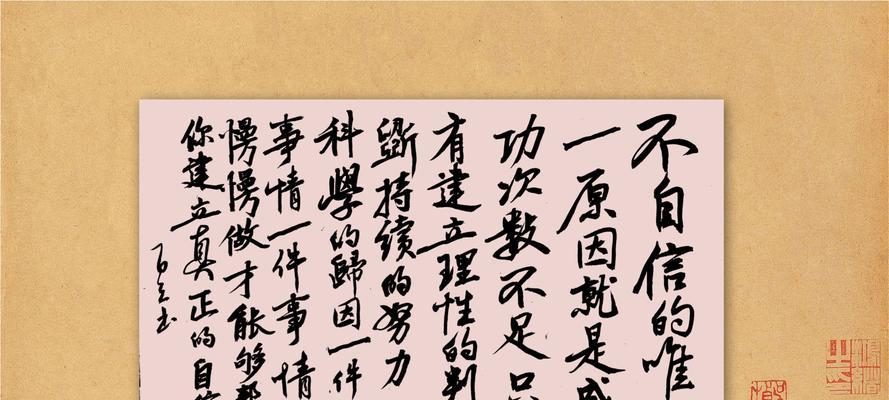 不自信的唯
一原因就是成
功次数不足只
有建立理性的判
斷持续的努力
科學的歸因一件
事情一件事情
慢慢做才能够帮
你建立真正的自信